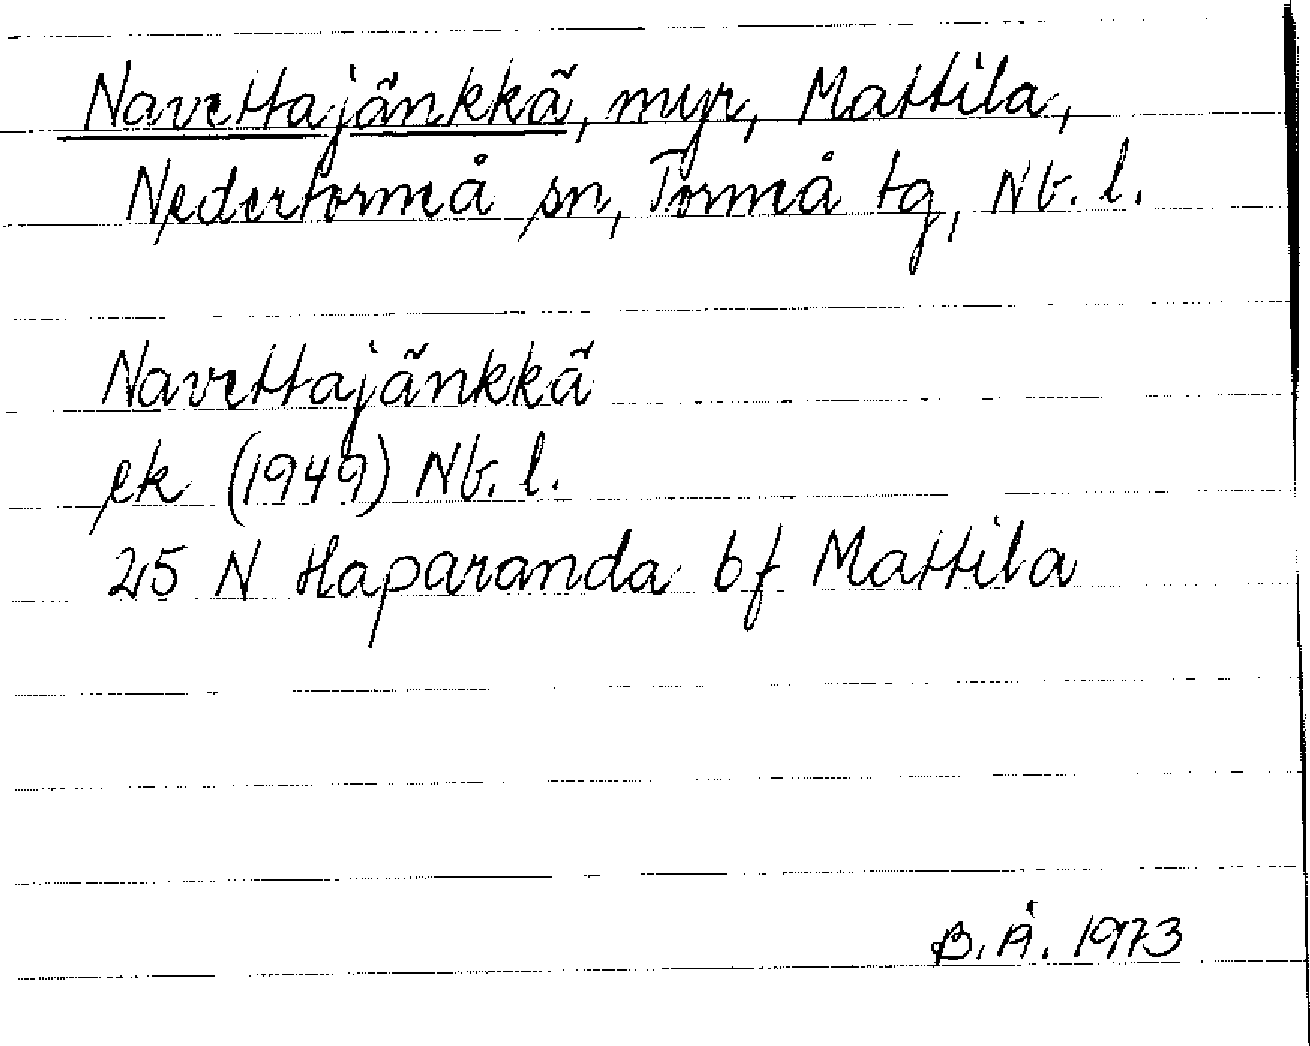 Navettajänkkä, myr, Mattila,
Nedertorneå sn, Torneå tg, Nb. l.
Navettajänkkä
ek (1949) Nb. l.
25 N Haparanda bf Mattila
B.Å. 1973